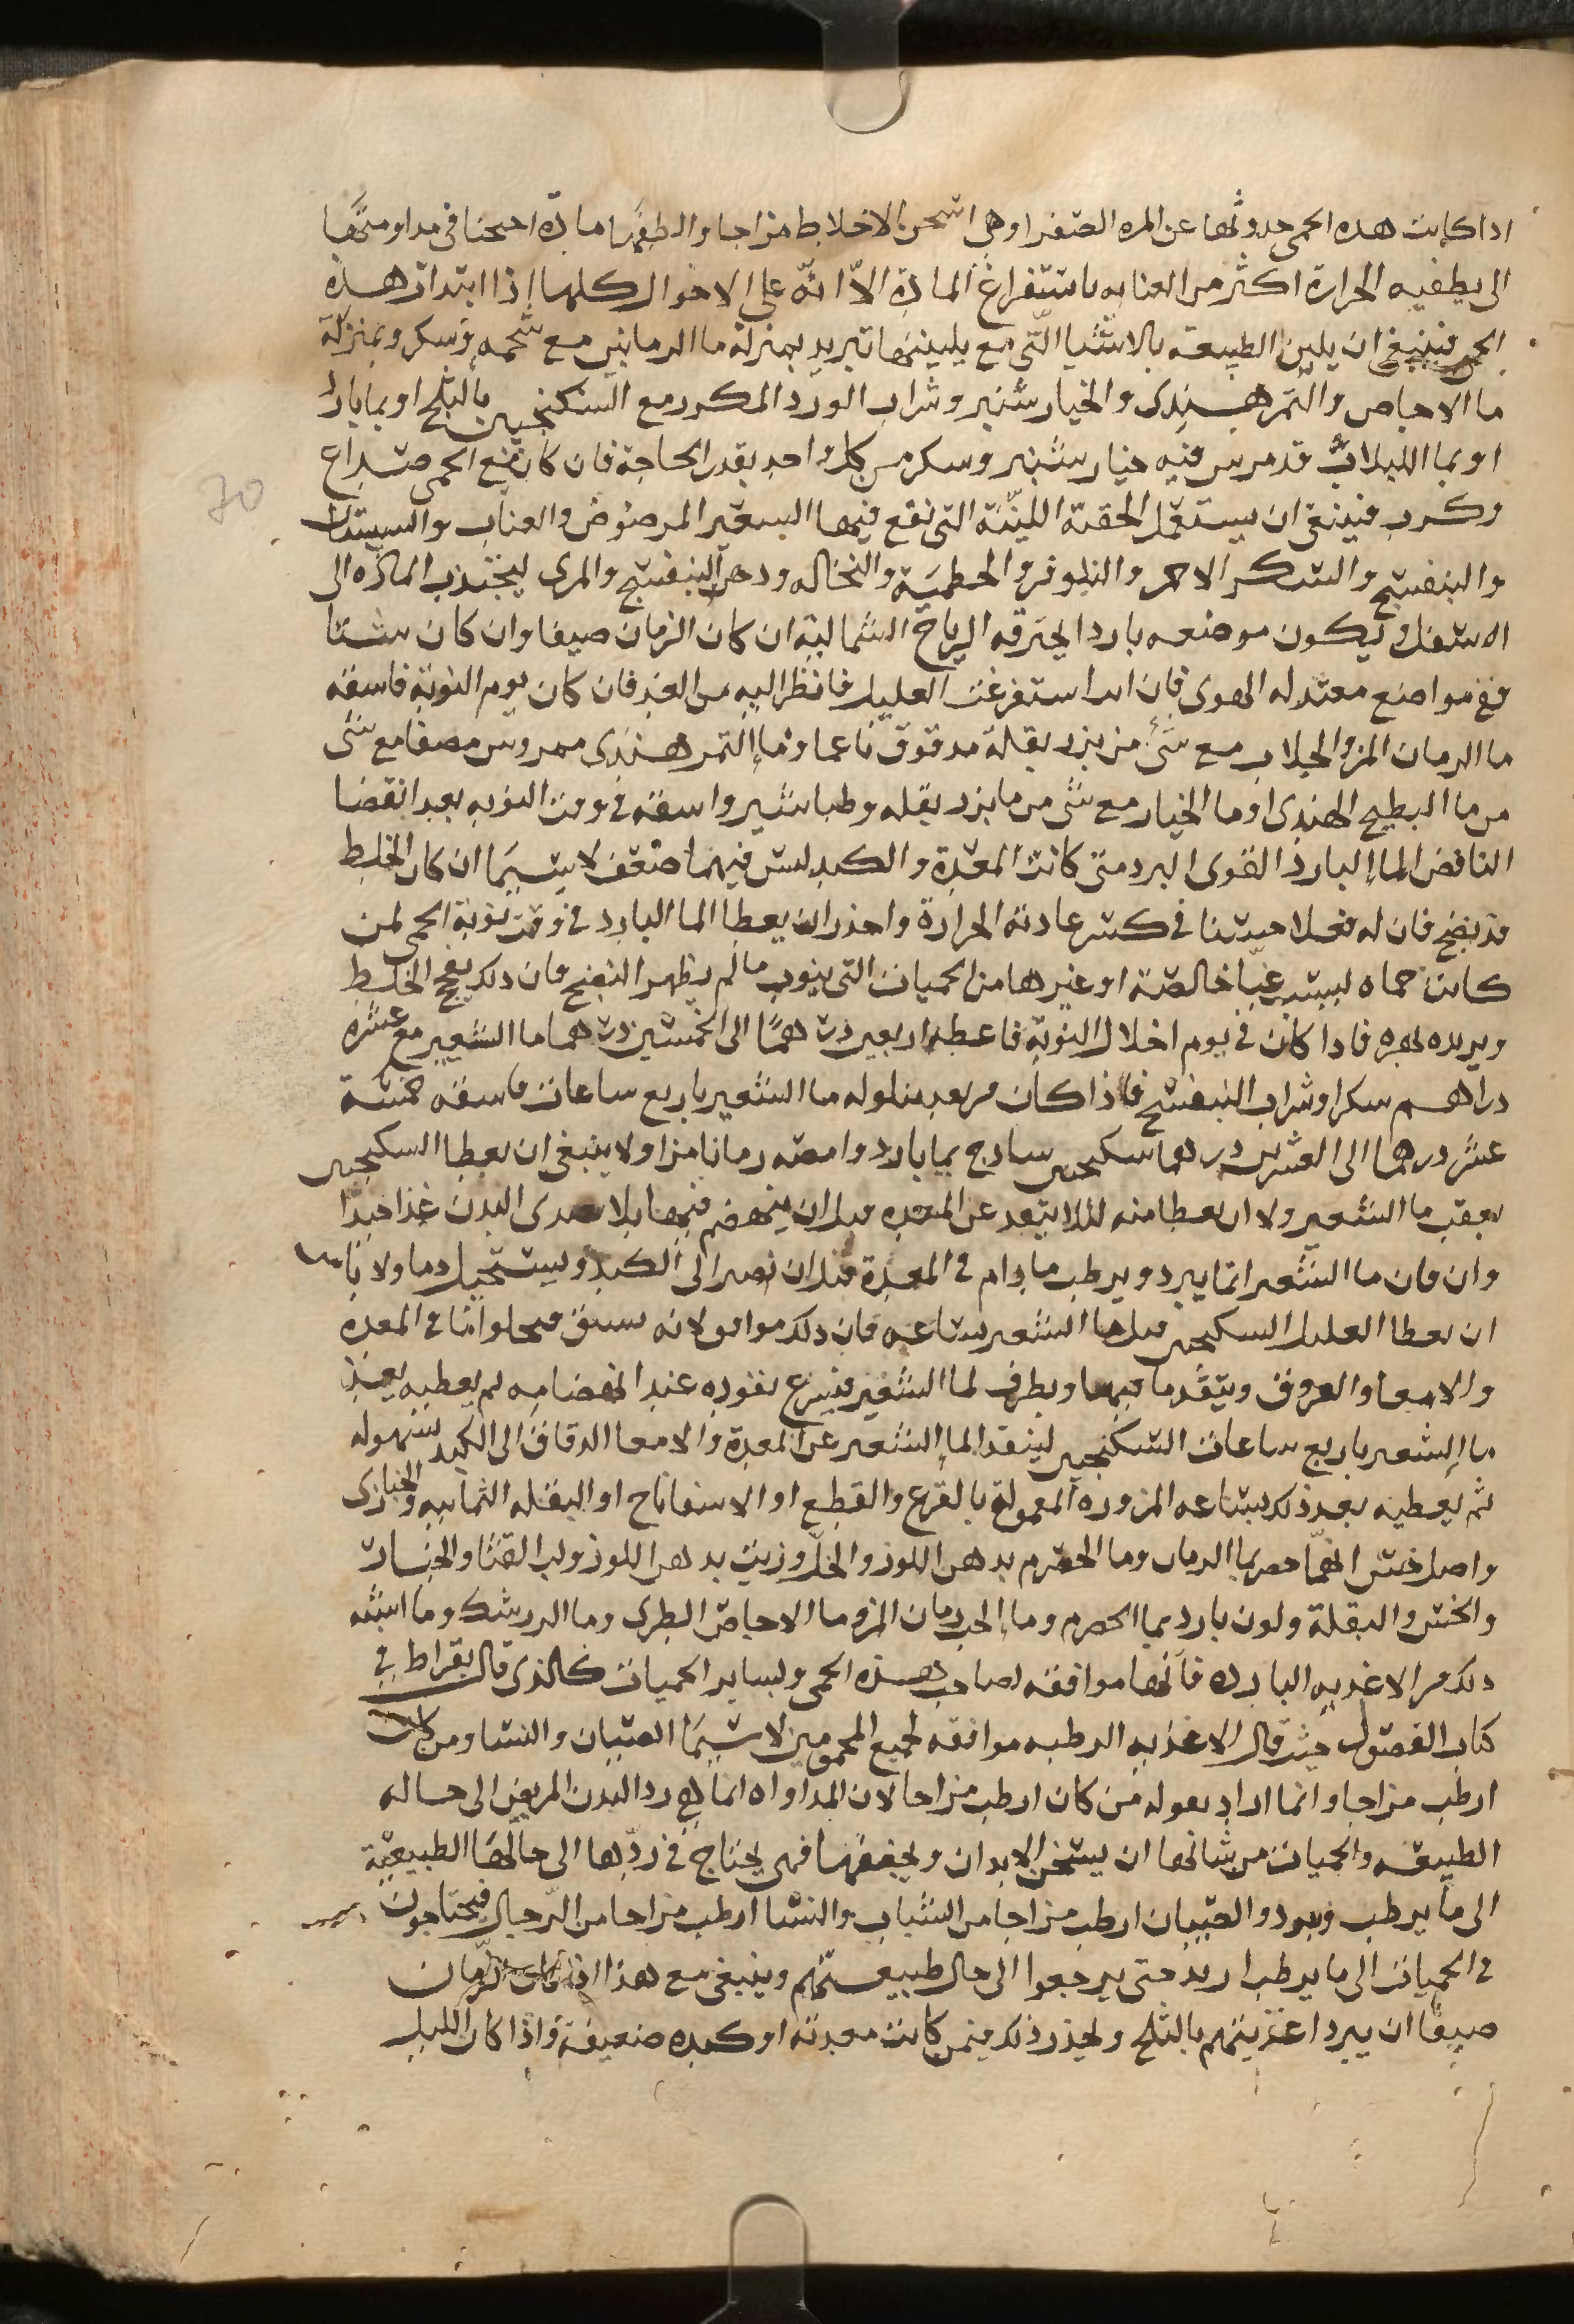 اذا كانت هذه الحمى حدوثها عن المره الصفرا وهي اسخن الاخلاط مزاجا والطفها مادة احتجنا في مداومتها
الى يطفيه الحرارة اكثر من العنايه باستفراغ المادة الا انه على الاحوال كلها اذا ابتدات هذه
الحمى فينبغي ان يلين الطبيعة بالاشيا التي مع يليينها تبريد بمنزلة ما الرمانين مع شحمه وسكر وبمنزلة
ما الاجاص والتمر هندى والخيار شنبر وشراب الورد المكرر مع السكنجبين بالثلج او بما بارد
او بما اللبلاب قد مرس فيه خيار شنبر وسكر من كل واحد بقدر الحاجة فان كان مع الحمى صداع
وكرب فينبغى ان يستعمل الحقنة اللينة التي نقع فيها الشعير المرضوض والعناب والسبستان
والبنفسج والسكر الاحمر والنيلوفر والخطمية والنخاله ودهن البنفسج والمرى ليجتذب الماده الى
الاسفل وليكون موضعه باردا يخترقه الرياح الشمالية ان كان الزمان صيفا وان كان شتا
ففي مواضع معتدله الهوى فان استفرغت العليل فانظر اليه من الغد فان كان يوم النوبة فاسقه
ما الرمان المز والجلاب مع شئ من بزر بقلة مدقوق ناعما وما التمر هندى ممروس مصفا مع شى
من ما البطيخ الهندى او ما الخيار مع شى من ما بزر بقله وطباشير واسقه في وقت النوبه بعد انقضا
النافض الما البارد القوى البرد متى كانت المعدة والكبد ليس فيهما ضعف لا سيما ان كان الخلط
قد نضج فان له فعلا حسنا في كسر عادته الحرارة واحذر ان يعطا الما البارد في وقت نوبة الحمى لمن
كانت حماه ليست غبا خالصة او غيرها من الحميات التى ينوب ما لم يظهر النضج فان ذلك يفجج الخلط
ويزيده نهوه فاذا كان في يوم اخلال النوبة فاعطه اربعين درهما الى الخمسين درهما ما الشعير مع عشرة
دراهم سكر او شراب البنفسج فاذا كان من بعد تناوله ما الشعير باربع ساعات فاسقه خمسة
عشر درهما الى العشرين درهما سكنجبين ساذج بما بارد وامصه رمانا مزا ولا ينبغى ان يعطا السكنجبين
بعقب ما الشعير ولا ان يعطا منه لئلا يبتعد عن المعده قبل ان ينهضم فيها فلا يغذى البدن غذا جيدا
وان فان ما الشعير انما يبرد ويرطب ما دام في المعدة قبل ان تصير الى الكبد ويستحيل دما ولا باس
ان يعطا العليل السكنجبين قبل ما الشعير بساعه فان ذلك موافق لانه يسبق فيجلو ما في المعده
والامعا والعروق ويتقدم فيها ويطرق لما الشعير فيسرع نفوذه عند انهضامه ثم يعطيه بعد
ما الشعير باربع ساعات السكنجبين لينفذ الما الشعير عن المعدة والامعا الدقاق الى الكبد بسهوله
ثم يعطيه بعد ذلك بساعه المزوره المعموله بالقرع والقطع او الاسفاناخ او البقله اليمانيه والخبازى
واصل خس اتخما بما الرمان وما الحصرم بدهن اللوز والخل وزيت بدهن اللوز ولب القثا والخيار
والخس والبقلة ولون بارد بما الحصرم وما الحب رمان المز وما الاجاص الطرى وما الزرشك وما اشبه
ذلك من الاغذيه الباردة فانها موافقه لصاحب هذه الحمى ولساير الحميات كالذى قال بقراط في
كتاب الفصول حيث قال الاغذيه الرطبه موافقه لجميع المحمومين لا سيما الصبيان والنسا ومن كان
ارطب مزاجا وانما اراد بقوله من كان ارطب مزاجا لان المداواه انما هى رد البدن المريض الى حاله
الطبيعيه والحميات من شانها ان يسخن الابدان ويجففها فهى يحتاج في ردها الى حالها الطبيعية
الى ما يرطب ويبرد والصبيان ارطب مزاجا من الشباب والنسا ارطب مزاجا من الرجال فيحتاجون
في الحميات الى ما يرطب ازيد حتى يرجعوا الى حال طبيعتهم وينبغى مع هذا اذا كان الزمان
صيفا ان يبرد اغذيتهم بالثلج وليحذر ذلك فيمن كانت معدته او كبده ضعيفة واذا كان الليل